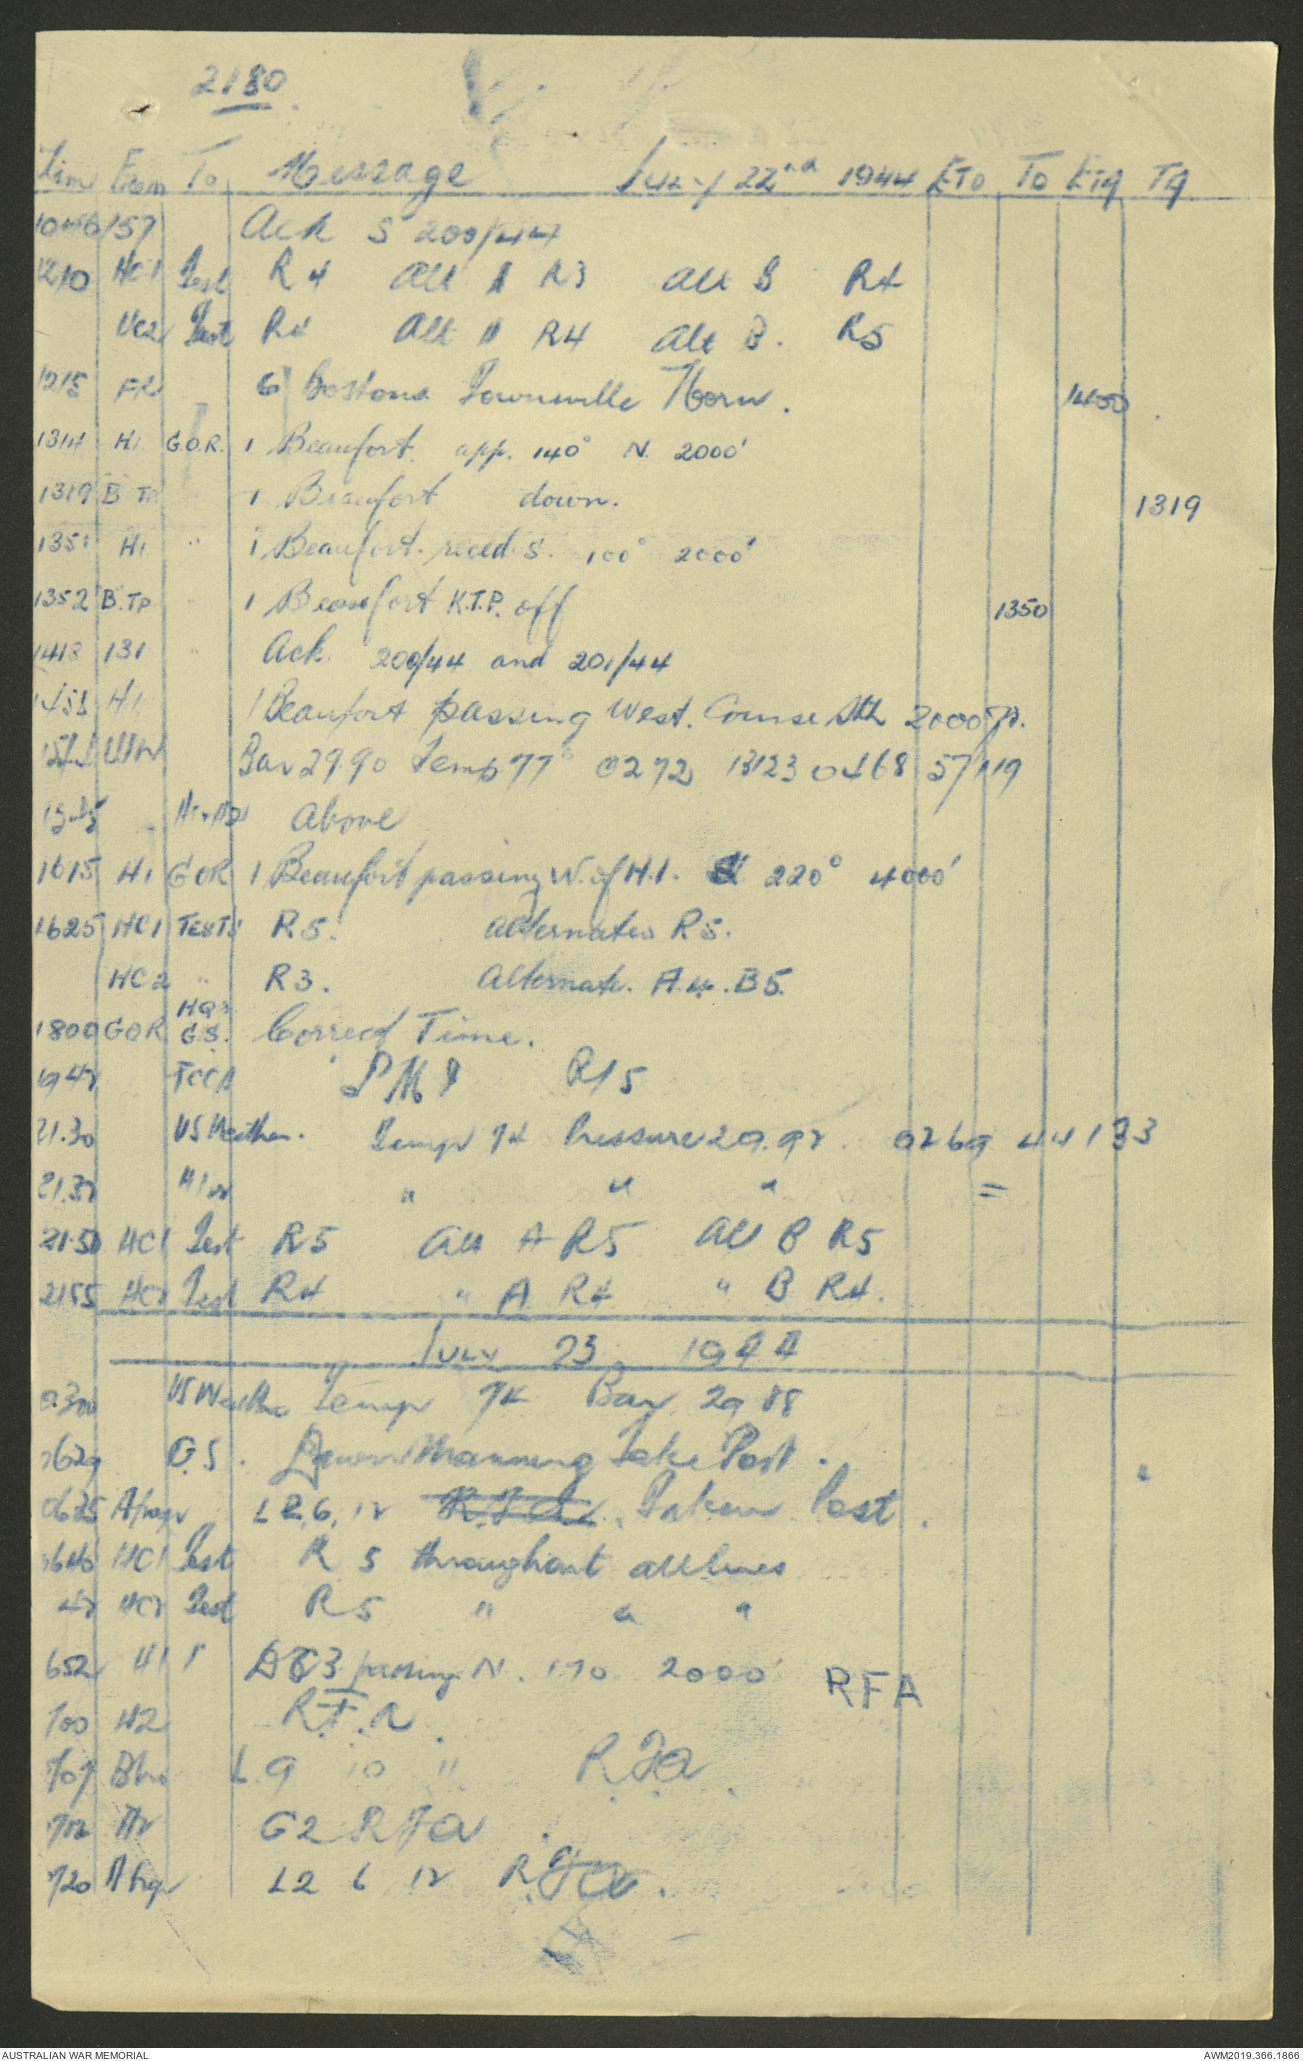 2180
Time From To Message July 22nd 1944 ETO TO ETA TA
1040 157 Ack S 200/44
1210 HC1 Test R4 Alt A R3 Alt B R4
HC2 Test R4 Alt A R4 Alt B. R5
1215 FR 6 Bostons Townsville Horn. 1400
1314 H1 G.O.R. 1 Beaufort. app. 140° N. 2000'
1319 B TP " 1 Beaufort down. 1319
1351 H1 " 1 Beaufort. reced. S. 100° 2000'
1352 B.TP " 1 Beaufort K.T.P. off 1350
1418 131 " Ack. 200/44 and 201/44
1455 H1 1 Beaufort passing West. Course Sth 2000 ft.
USW Bar 29.90 Temp 77° 0272 13123 0468 57119
1545 H1 + H2 Above
1615 H1 GOR 1 Beaufort passing W. of H.1. 220° 4000'
1625 HC1 TESTS R5. alternates R5.
HC2 " R3. Alternate. A.4. B5.
1800 GOR HQs G.S. Correct Time.
1942 TCCA R15
21.30 US Weather. Temp 74 Pressure 29.92. 0269 44133
21.32 H1 " " " =
2150 HC1 Test R5 Alt A R5 Alt B R5
2155 HC2 Test R4 " A R4 " B R4.
July 23 1944
0.300 US Weather Temp 74 Bar 29 88
0629 G.S. Dawn Manning Take Post.
0635 L 2, 6, 12 R.F.A. Taken Post.
0640 HC1 Test R 5 throughout all lines
42 HC2 Test R5 " " "
652 H1 " DC3 passing N. 170 2000' RFA
700 H2 R.F.A.
707 L 9 10 " R.F.A.
712 G2 R F A
720 L2 6 12 R.F.A.
AUSTRALIAN WAR MEMORIAL AWM2019.366.1866